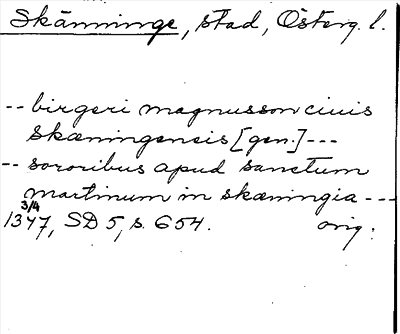 Skänninge, stad, Österg. l.
-- birgeri magnusson ciuis
skæningensis [gen.] ---
-- sororibus apud sanctum
martinum in skæningia ---
3/4
1347, SD 5, s. 654. orig.